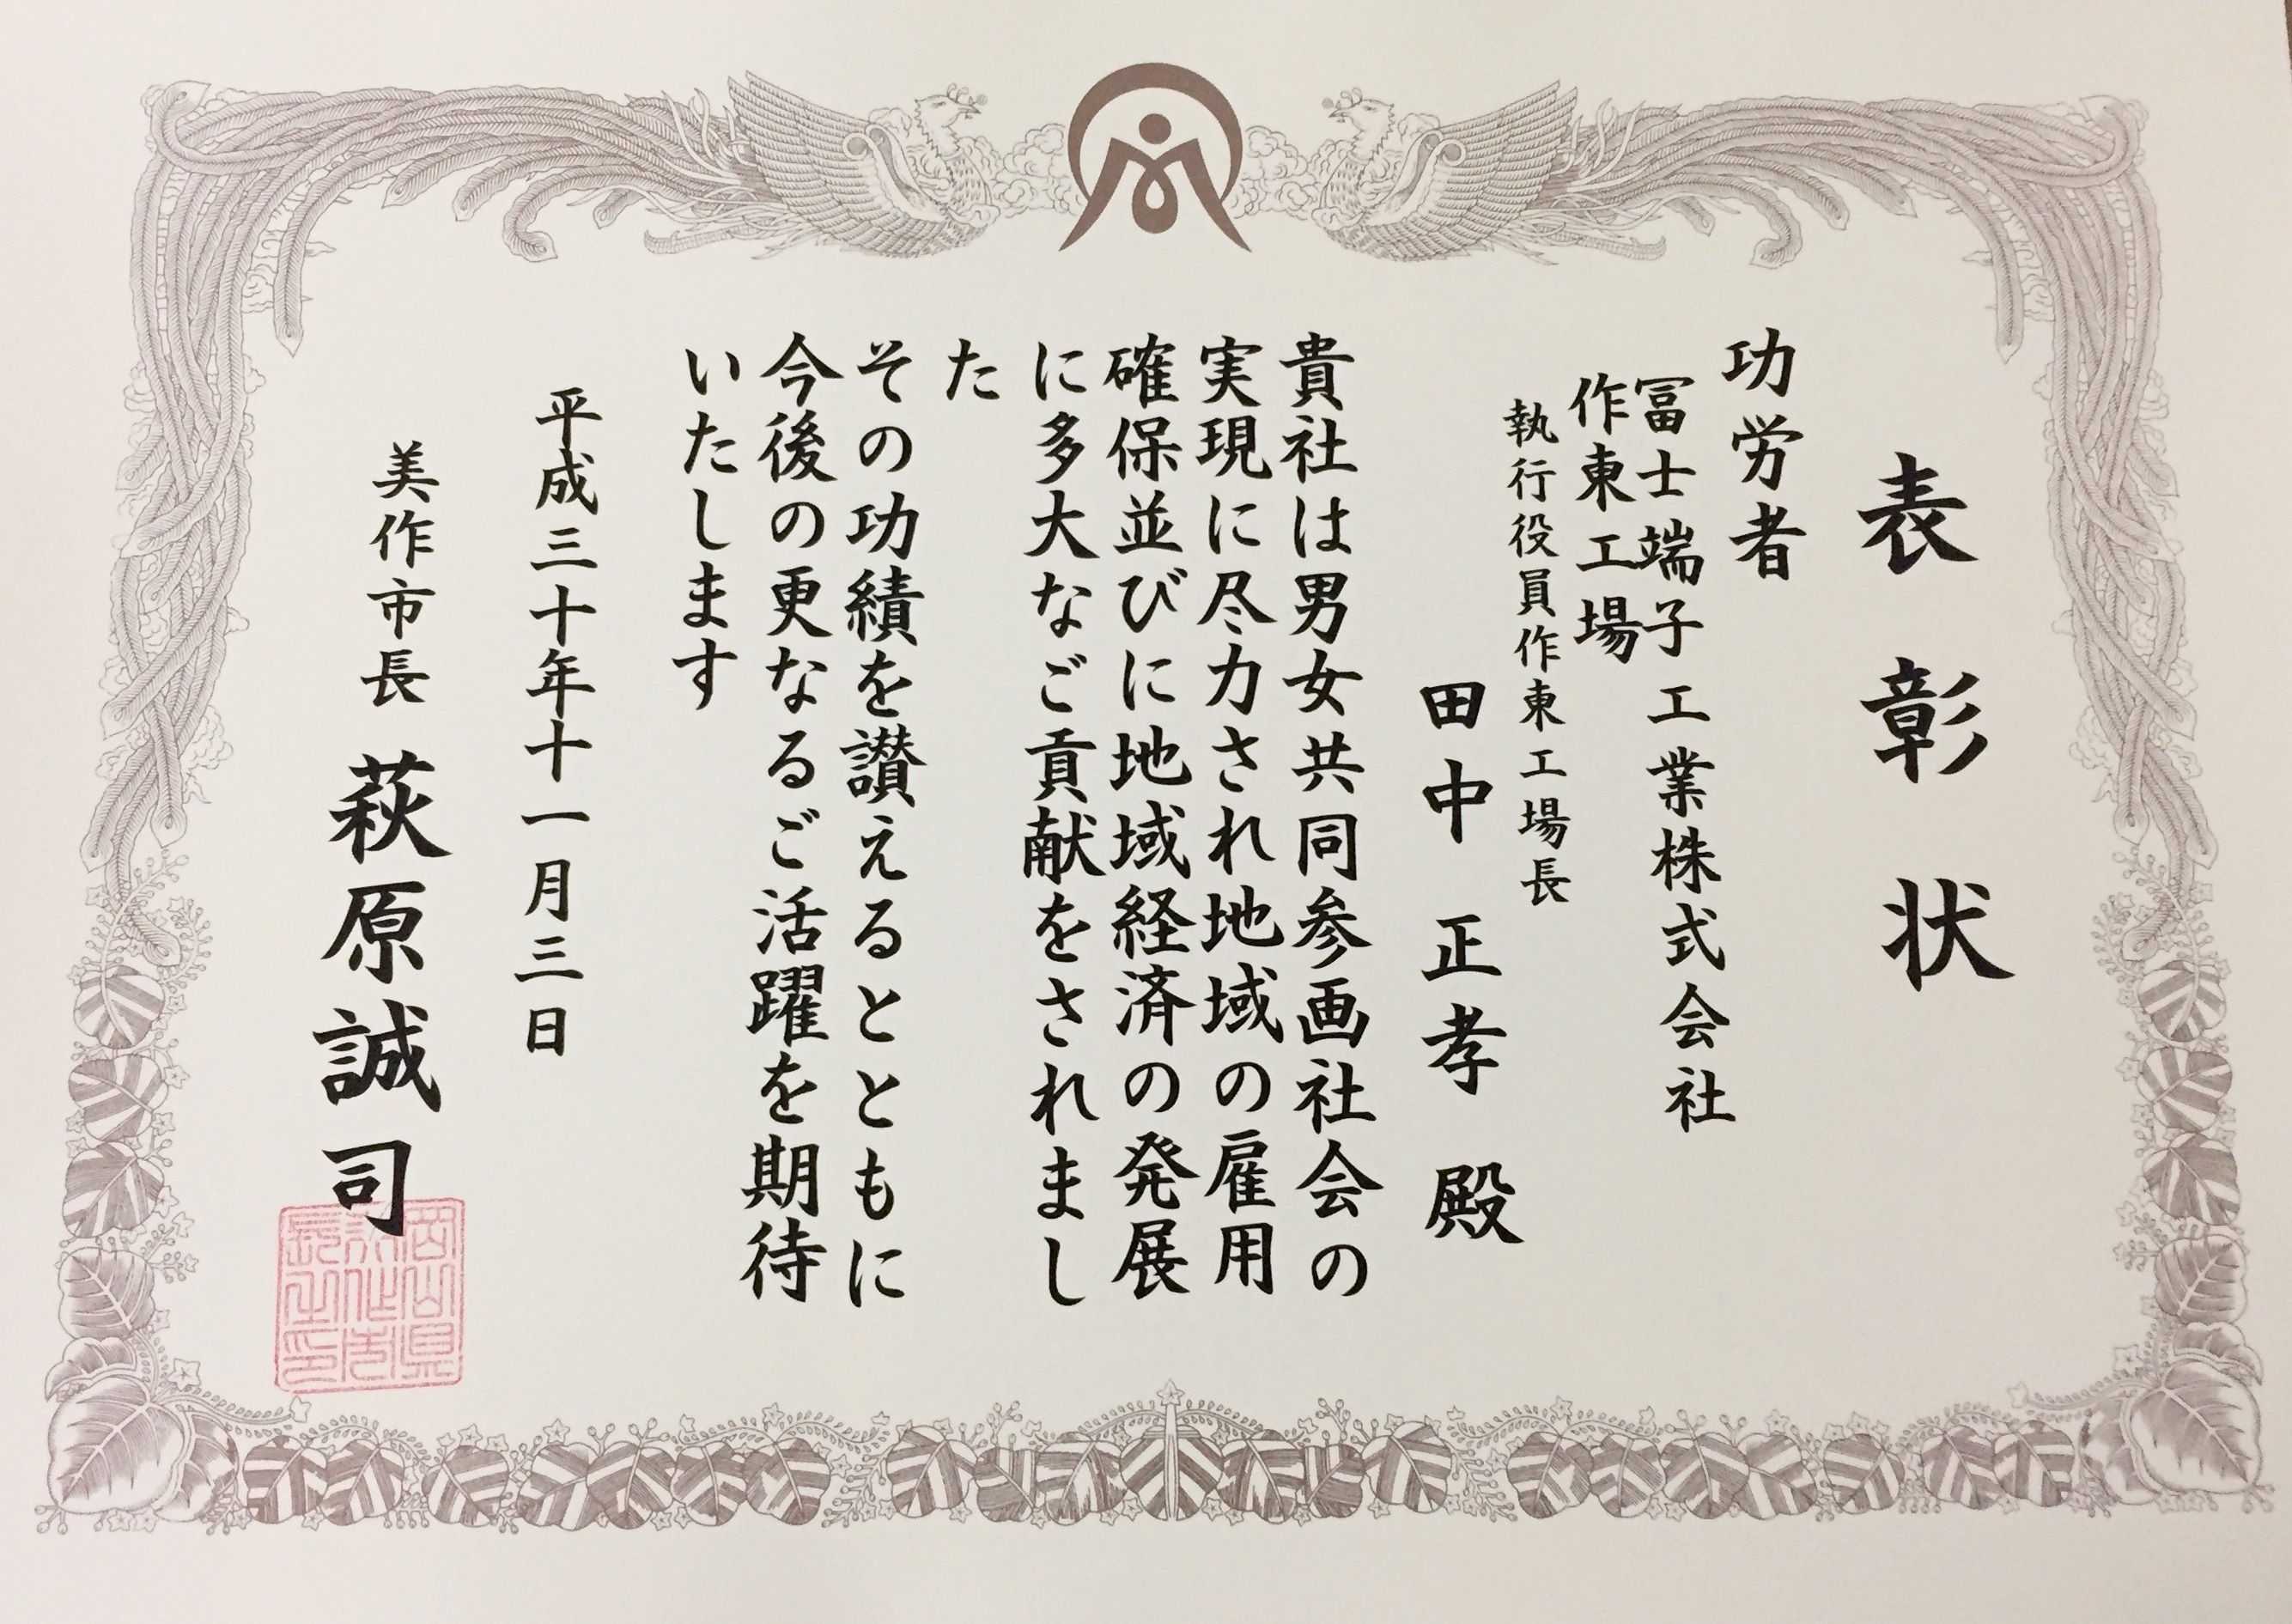 表彰状
功労者
冨士端子工業株式会社
作東工場
執行役員作東工場長
田中正孝殿
貴社は男女共同参画社会の
実現に尽力され地域の雇用
確保並びに地域経済の発展
に多大なご貢献をされまし
た
その功績を讃えるとともに
今後の更なるご活躍を期待
いたします
平成三十年十一月三日
美作市長 萩原誠司
岡山県
美作市
長之印